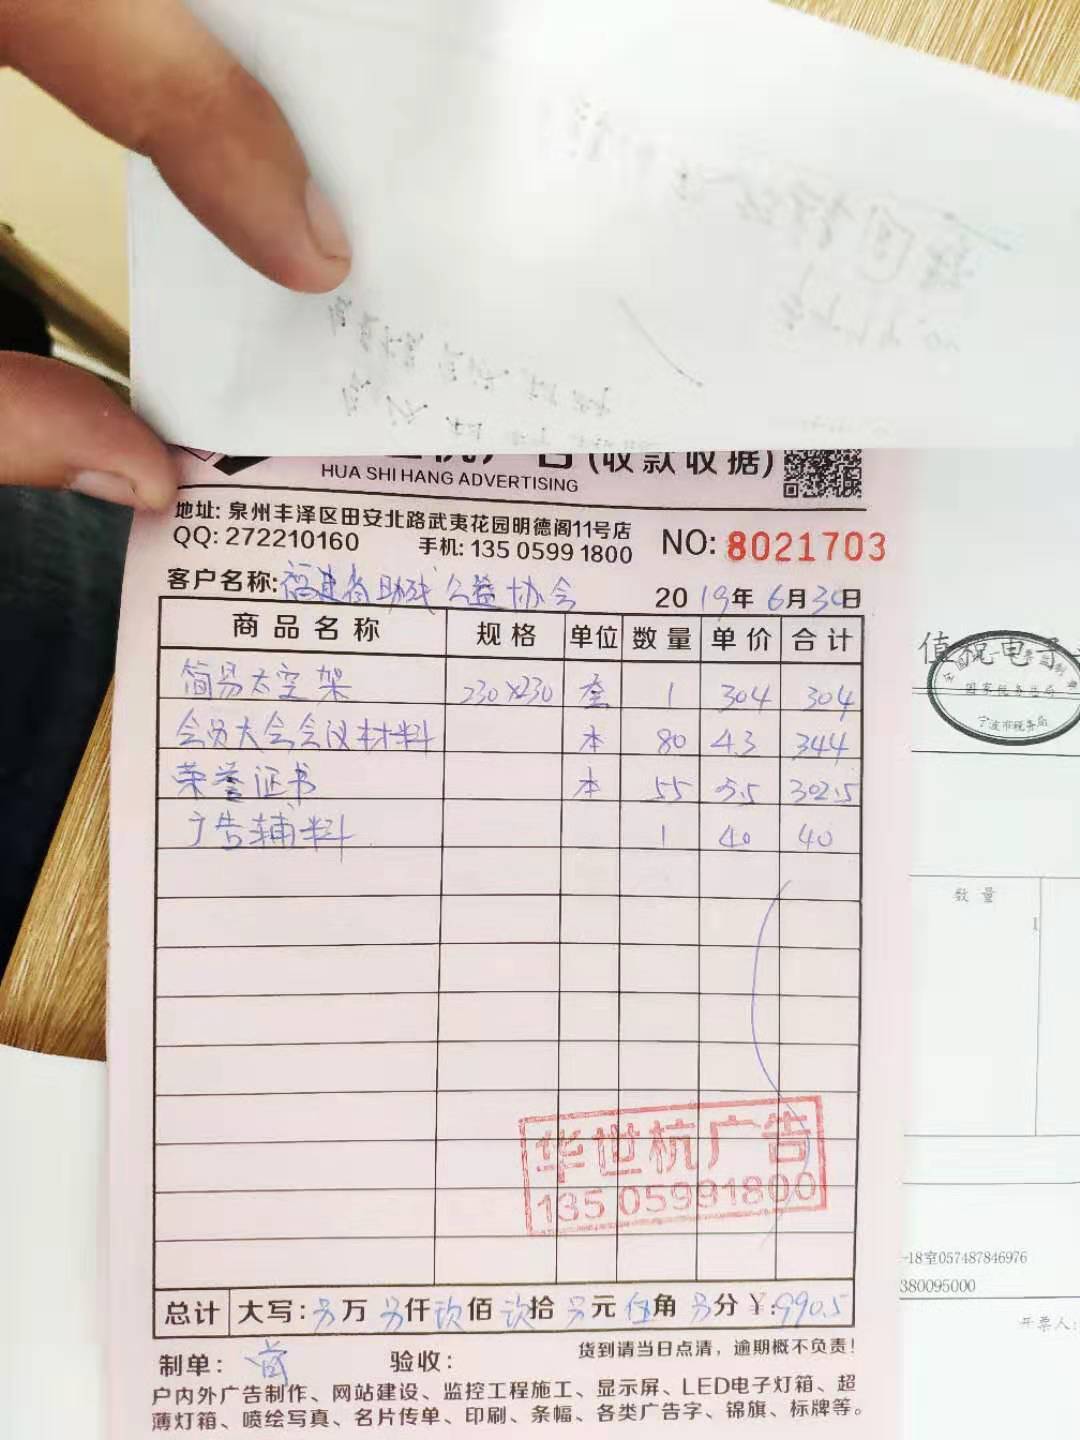 广告(收款收据)
HUA SHI HANG ADVERTISING
地址: 泉州丰泽区田安北路武夷花园明德阁11号店
QQ: 272210160 手机: 135 0599 1800 NO: 8021703
客户名称: 福建省助残公益协会 2019年6月30日
商品名称 规格 单位 数量 单价 合计
简易太空架 230×230 套 1 304 304
会员大会会议材料 本 80 4.3 344
荣誉证书 本 55 5.5 302.5
广告辅料 1 40 40
华世杭广告
135 05991800
总计 大写: 另万 另仟 玖佰 玖拾 另元 伍角 另分 ¥: 990.5
货到请当日点清，逾期概不负责！
制单: 验收:
户内外广告制作、网站建设、监控工程施工、显示屏、LED电子灯箱、超
薄灯箱、喷绘写真、名片传单、印刷、条幅、各类广告字、锦旗、标牌等。
值税电子
国家税务总局
宁波市税务局
数量
1
-18室057487846976
380095000
开票人: